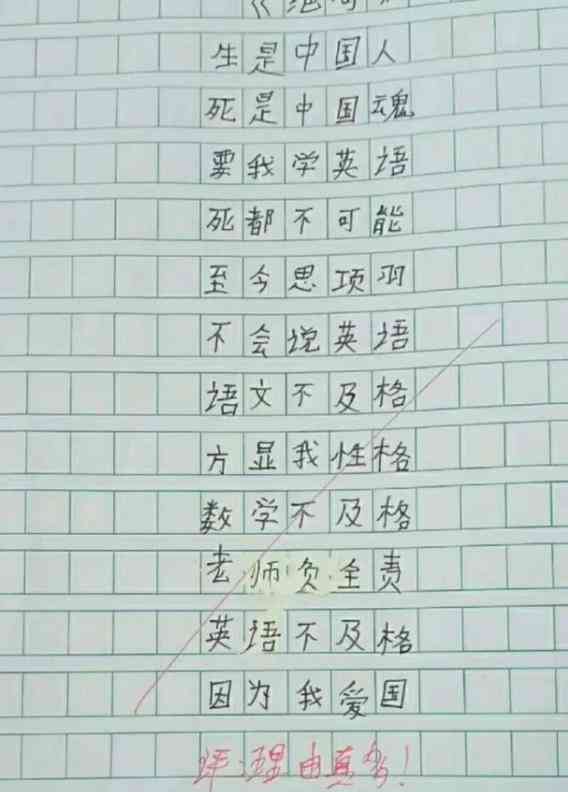 生是中国人
死是中国魂
要我学英语
死都不可能
至今思项羽
不会说英语
语文不及格
方显我性格
数学不及格
老师负全责
英语不及格
因为我爱国
评:理由真多!